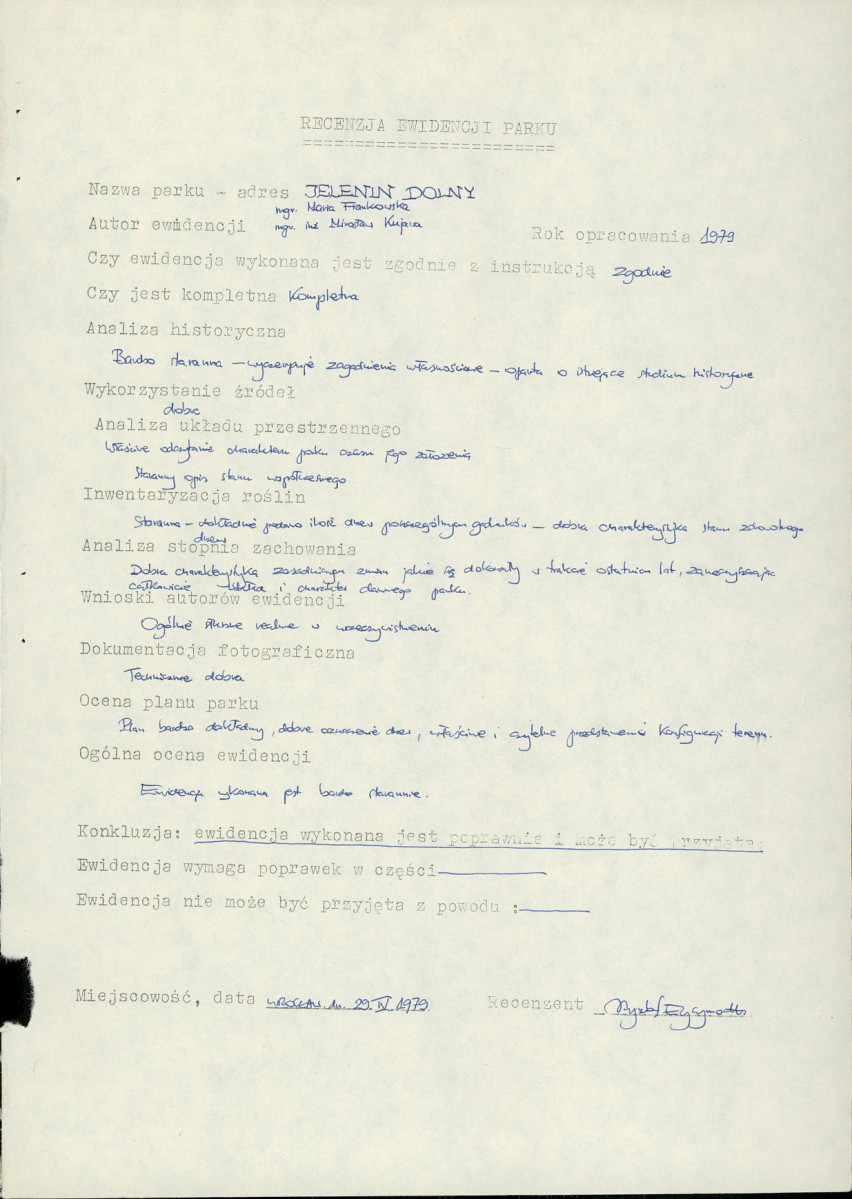 RECENZJA EWIDENCJI PARKU
Nazwa parku - adres JELENIN DOLNY
mgr. Maria Frankowska
Autor ewidencji mgr. inż Mirosław Kujawa
Rok opracowania 1979
Czy ewidencja wykonana jest zgodnie z instrukcją zgodnie
Czy jest kompletna Kompletna
Analiza historyczna
Bardzo staranna - wyczerpuje zagadnienia własnościowe - oparta o istniejące studium historyczne
Wykorzystanie źródeł
dobre
Analiza układu przestrzennego
Właściwe odczytanie charakteru parku czasu jego założenia
Staranny opis stanu współczesnego
Inwentaryzacja roślin
Staranna - dokładnie podano ilość drzew poszczególnych gatunków - dobra charakterystyka stanu zdrowotnego
drzew
Analiza stopnia zachowania
Dobra charakterystyka zasadniczych zmian jakie się dokonały w trakcie ostatnich lat,
całkowicie układ i charakter dawnego parku.
Wnioski autorów ewidencji
Ogólnie słuszne realne w urzeczywistnieniu
Dokumentacja fotograficzna
Technicznie dobra
Ocena planu parku
Plan bardzo dokładny, dobre oznaczenie drzew, właściwe i czytelne przedstawienie konfiguracji terenu.
Ogólna ocena ewidencji
Ewidencja wykonana jest bardzo starannie.
Konkluzja: ewidencja wykonana jest poprawnie i może być przyjęta.
Ewidencja wymaga poprawek w części
Ewidencja nie może być przyjęta z powodu :
Miejscowość, data Wrocław dn. 29.IV 1979 Recenzent